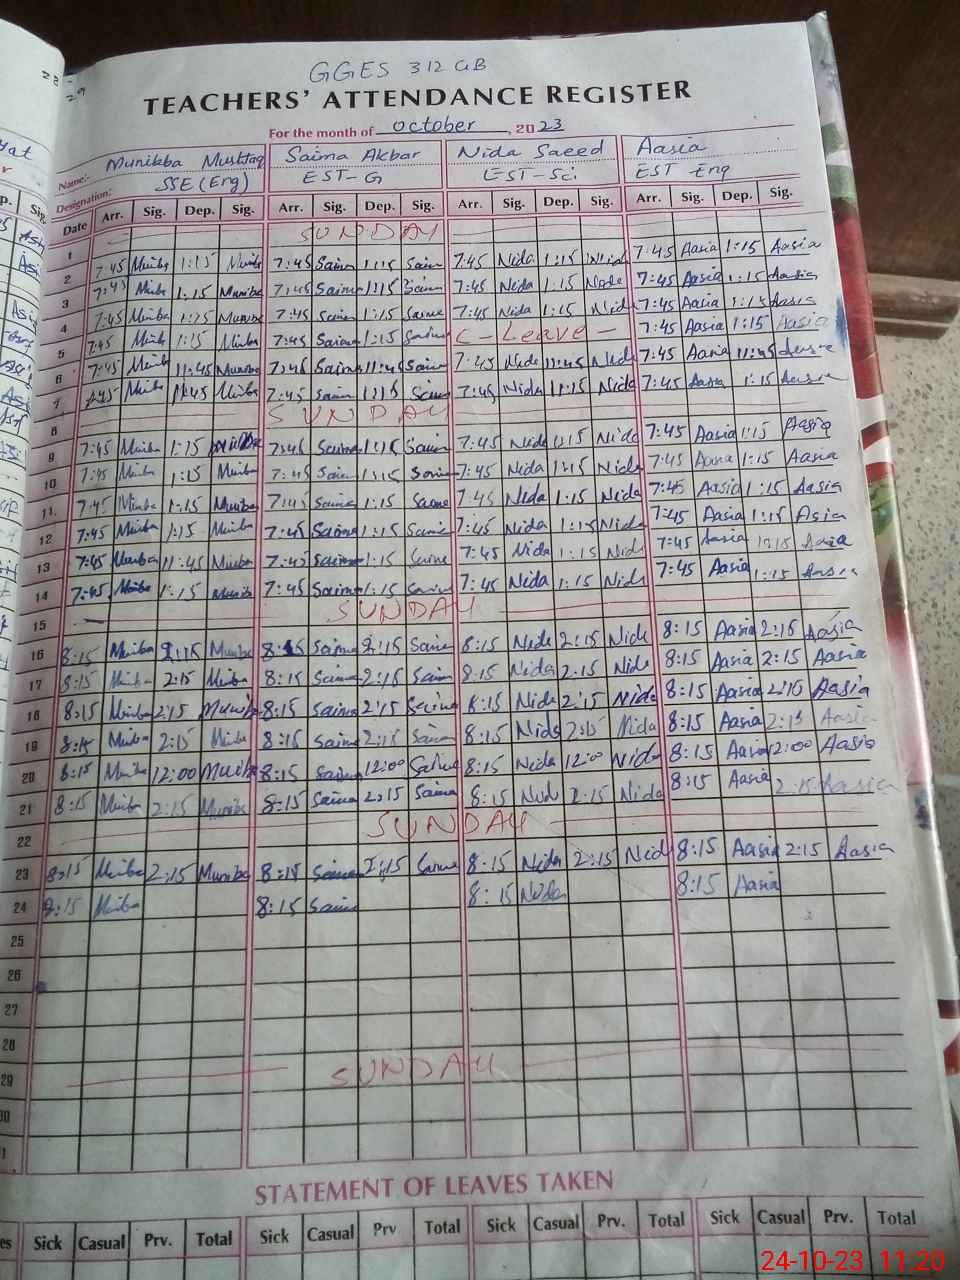 GGES 312 GB
TEACHERS' ATTENDANCE REGISTER
For the month of October, 2023
Name:- Munibba Mushtaq Saima Akbar Nida Saeed Aasia
Designation: SSE (Eng) EST-G EST-Sci EST Eng
Date Arr. Sig. Dep. Sig. Arr. Sig. Dep. Sig. Arr. Sig. Dep. Sig. Arr. Sig. Dep. Sig.
1 SUNDAY
2 7:45 Muniba 1:15 Muniba 7:45 Saima 1:15 Saima 7:45 Nida 1:15 Nida 7:45 Aasia 1:15 Aasia
3 7:45 Muniba 1:15 Muniba 7:45 Saima 1:15 Saima 7:45 Nida 1:15 Nida 7:45 Aasia 1:15 Aasia
4 7:45 Muniba 1:15 Muniba 7:45 Saima 1:15 Saima 7:45 Nida 1:15 Nida 7:45 Aasia 1:15 Aasia
5 7:45 Muniba 1:15 Muniba 7:45 Saima 1:15 Saima C-Leave- 7:45 Aasia 1:15 Aasia
6 7:45 Muniba 11:45 Muniba 7:45 Saima 11:45 Saima 7:45 Nida 11:45 Nida 7:45 Aasia 11:45 Aasia
7 7:45 Muniba Muniba 7:45 Saima 1:15 Saima 7:45 Nida 11:15 Nida 7:45 Aasia 1:15 Aasia
8 SUNDAY
9 7:45 Muniba 1:15 Muniba 7:45 Saima 1:15 Saima 7:45 Nida 1:15 Nida 7:45 Aasia 1:15 Aasia
10 7:45 Muniba 1:15 Muniba 7:45 Saima 1:15 Saima 7:45 Nida 1:15 Nida 7:45 Aasia 1:15 Aasia
11 7:45 Muniba 1:15 Muniba 7:45 Saima 1:15 Saima 7:45 Nida 1:15 Nida 7:45 Aasia 1:15 Aasia
12 7:45 Muniba 1:15 Muniba 7:45 Saima 1:15 Saima 7:45 Nida 1:15 Nida 7:45 Aasia 1:15 Asia
13 7:45 Muniba 11:45 Muniba 7:45 Saima 1:15 Saima 7:45 Nida 1:15 Nida 7:45 Aasia Aasia
14 7:45 Muniba 1:15 Muniba 7:45 Saima 1:15 Saima 7:45 Nida 1:15 Nida 7:45 Aasia 1:15 Aasia
15 SUNDAY
16 8:15 Muniba 2:15 Muniba 8:15 Saima 2:15 Saima 8:15 Nida 2:15 Nida 8:15 Aasia 2:15 Aasia
17 8:15 Muniba 2:15 Muniba 8:15 Saima 2:15 Saima 8:15 Nida 2:15 Nida 8:15 Aasia 2:15 Aasia
18 8:15 Muniba 2:15 Muniba 8:15 Saima 2:15 Saima 8:15 Nida 2:15 Nida 8:15 Aasia 2:15 Aasia
19 8:15 Muniba 2:15 Muniba 8:15 Saima 2:15 Saima 8:15 Nida 2:15 Nida 8:15 Aasia 2:15 Aasia
20 8:15 Muniba 12:00 Muniba 8:15 Saima 12:00 Saima 8:15 Nida 12:00 Nida 8:15 Aasia 12:00 Aasia
21 8:15 Muniba 2:15 Muniba 8:15 Saima 2:15 Saima 8:15 Nida 2:15 Nida 8:15 Aasia 2:15 Aasia
22 SUNDAY
23 8:15 Muniba 2:15 Muniba 8:15 Saima 2:15 Saima 8:15 Nida 2:15 Nida 8:15 Aasia 2:15 Aasia
24 8:15 Muniba 8:15 Saima 8:15 Nida 8:15 Aasia
25
26
27
28
29 SUNDAY
30
STATEMENT OF LEAVES TAKEN
Sick Casual Prv. Total Sick Casual Prv Total Sick Casual Prv. Total Sick Casual Prv. Total
24-10-23 11:20